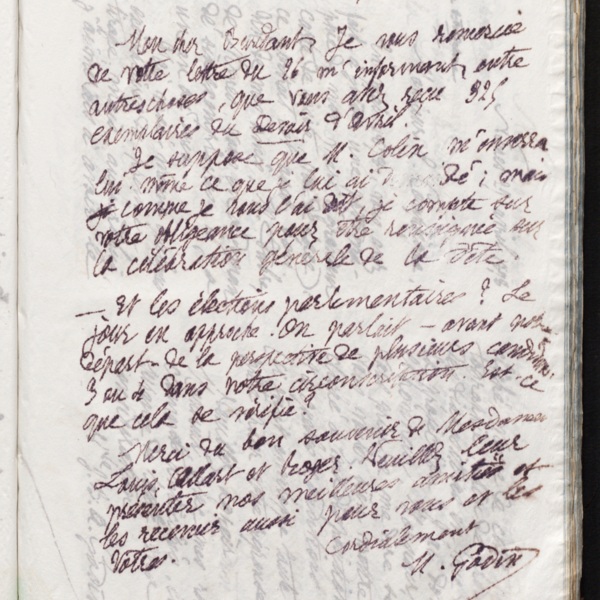 Mon cher Burdant, Je vous remercie
de votre lettre du 26 m'informant, entre
autres choses, que vous avez reçu 325
exemplaires du Devoir d'avril.
Je suppose que M. Colin m'enverra
lui même ce que je lui ai ; mais
je comme je vous l'ai dit, je compte sur
votre obligeance pour être renseignée sur
la célébration générale de la fête.
— Et les élections parlementaires ? Le
jour en approche. On parlait — avant notre
départ — de la perspective de plusieurs
3 ou 4 dans notre circonscription. Est-ce
que cela se vérifie ?
Merci du bon souvenir de Mesdames
Louis, Allart et Roger. Veuillez leur
présenter nos meilleures amitiés et
les recevoir aussi pour vous et les
vôtres.
Cordialement
M. Godin